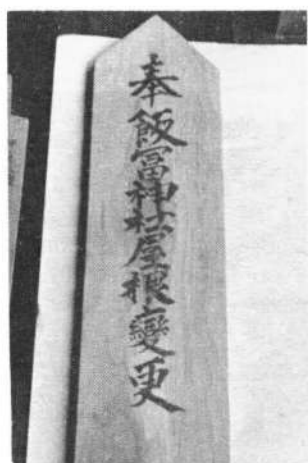 奉飯冨神社屋根變更